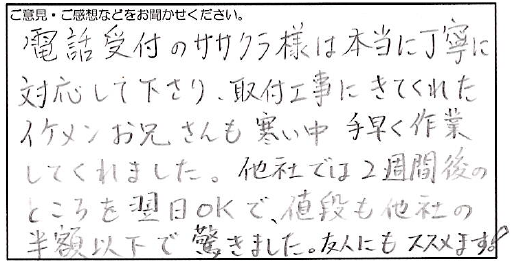 ご意見・ご感想などをお聞かせください。
電話受付のササクラ様は本当に丁寧に
対応して下さり、取付工事にきてくれた
イケメンお兄さんも寒い中 手早く作業
してくれました。他社では2週間後の
ところを翌日OKで、値段も他社の
半額以下で驚きました。友人にもススメます!